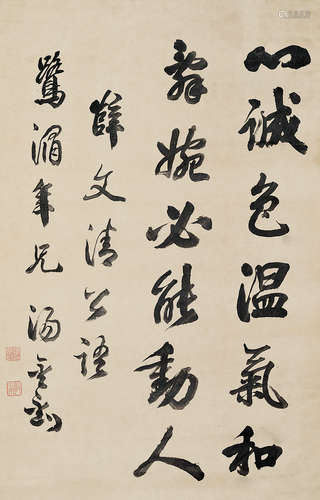 心誠色温氣和
辭婉必能動人
薛文清公語
鷺湄年兄 湯金釗